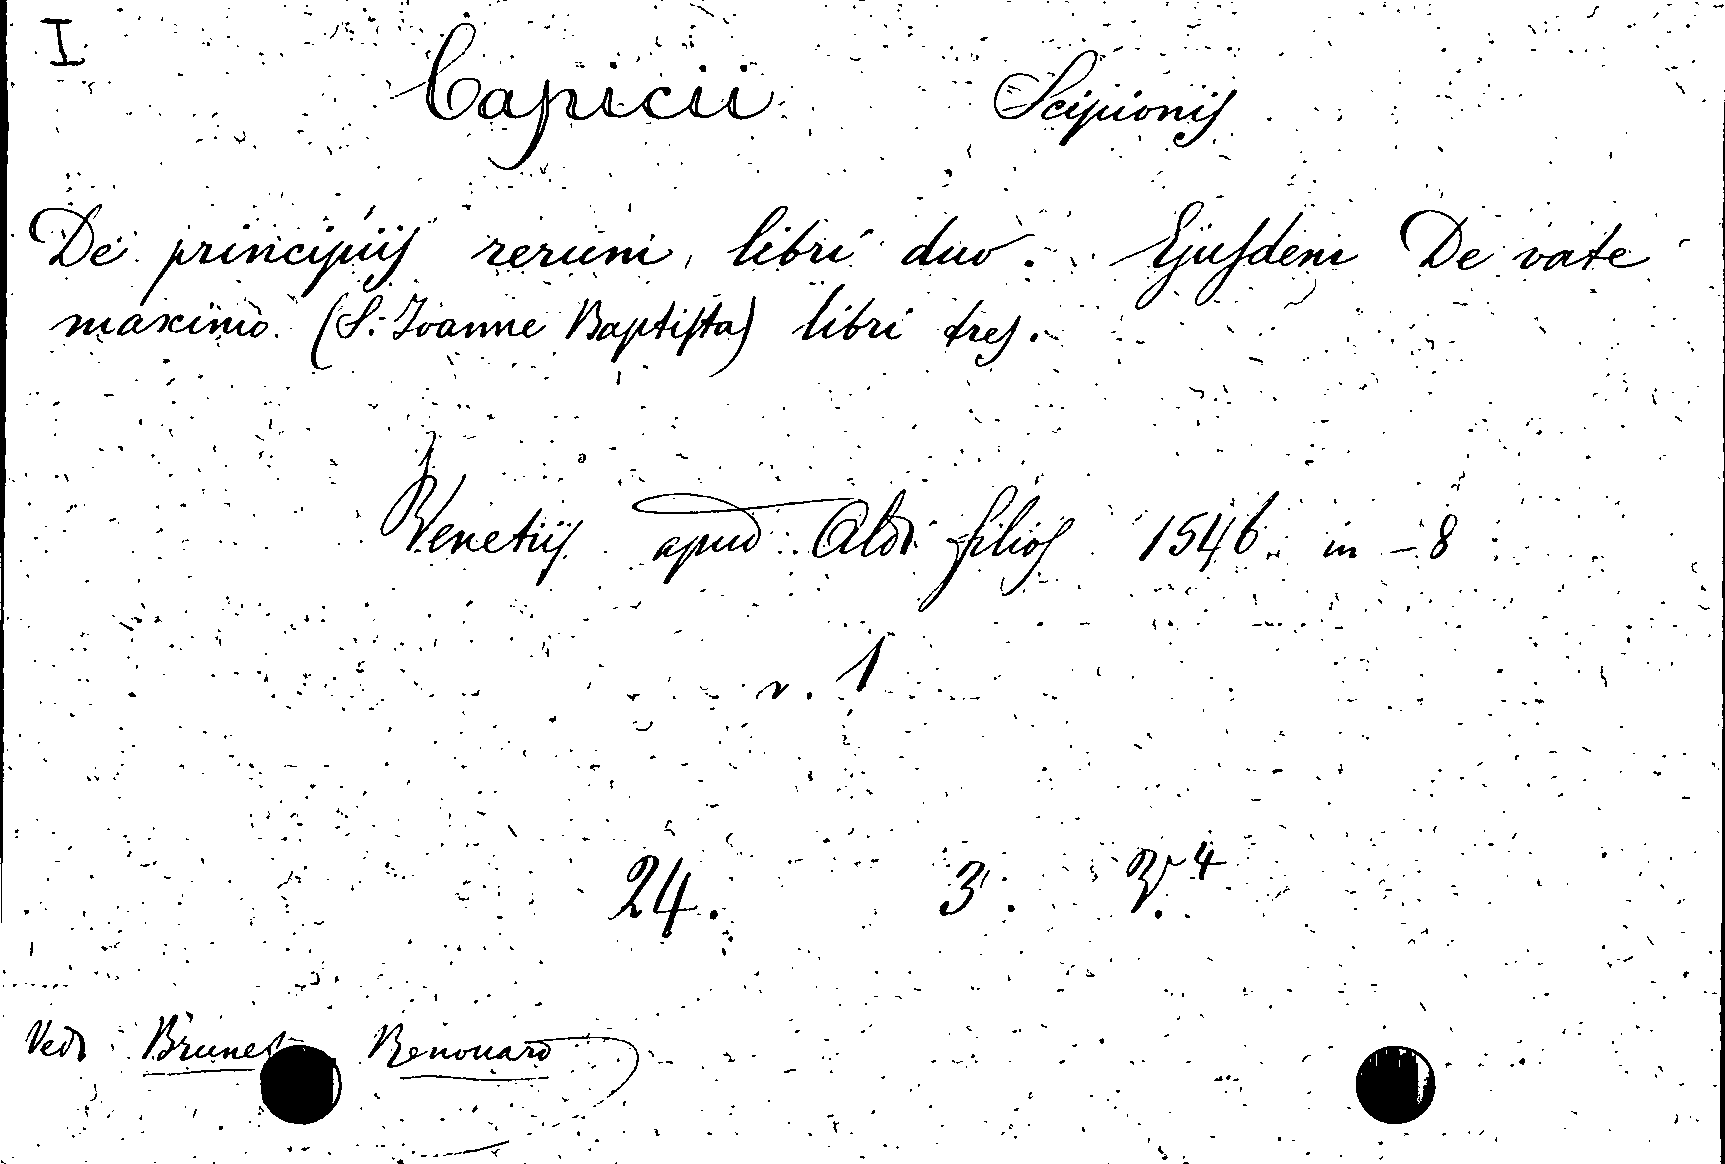 I
Capicii Scipionis
De principiis rerum, libri duo. Ejusdem De vate
maximo. (S. Joanne Baptista) libri tres.
Venetiis apud Aldi filios 1546. in - 8
v. 1
24. 3.
Vedi Brunet Renouard